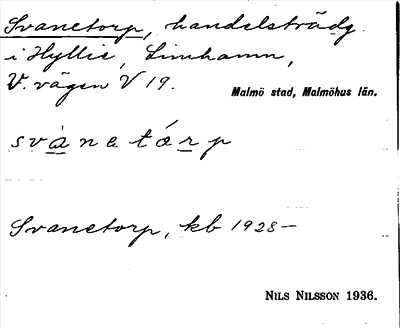 Svanetorp, handelsträdg.
i Hyllie, Limhamn,
V. vägen V 19.
Malmö stad, Malmöhus län.
svànetá̈rp
Svanetorp, kb 1928–
NILS NILSSON 1936.